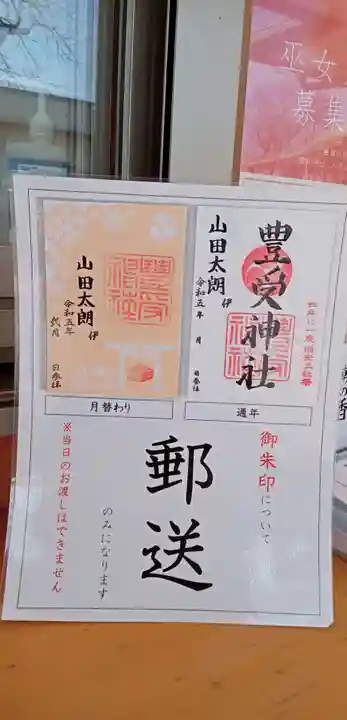 巫女
募集
豊受神社
山田太朗 伊
令和五年 月 日参拝
山田太朗 伊
令和五年 弐月 日参拝
通年
月替わり
御朱印について
郵送
のみになります
※当日のお渡しはできません